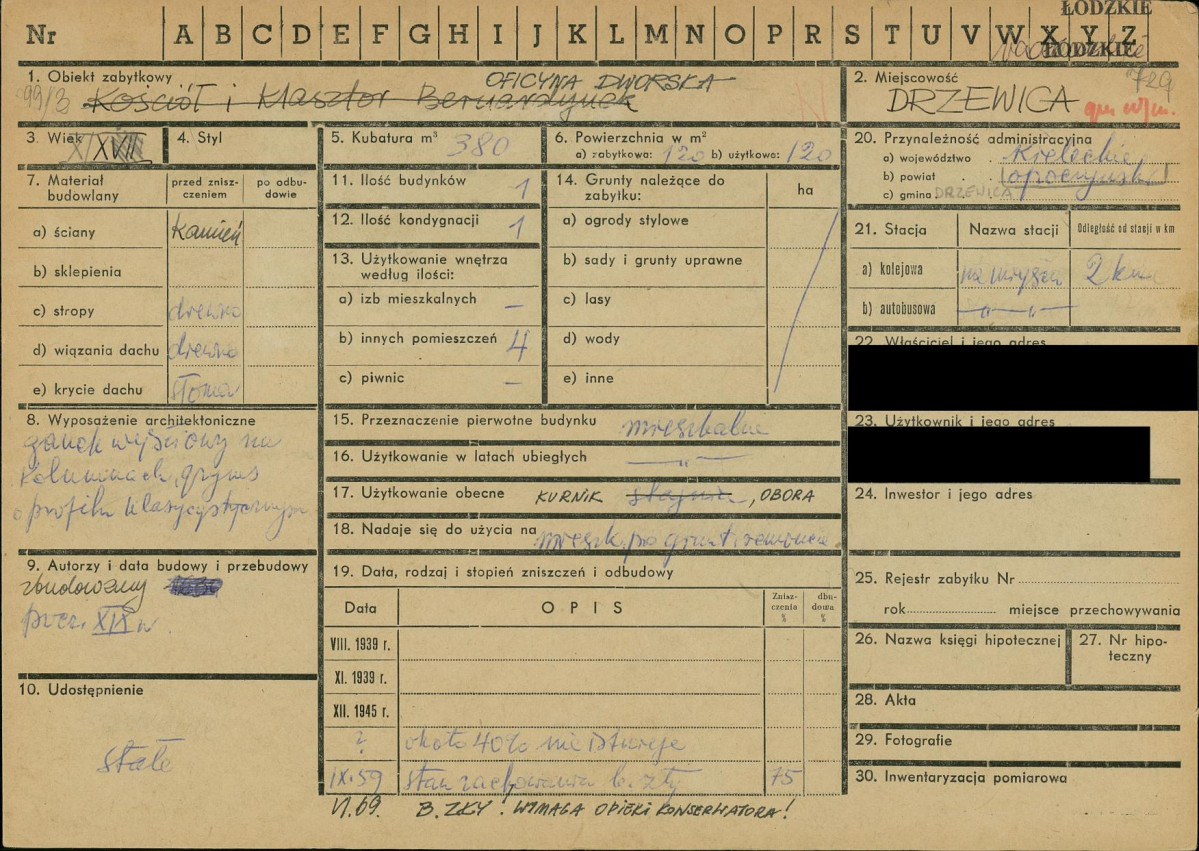 ŁÓDZKIE
Nr A B C D E F G H I J K L M N O P R S T U V W X Y Z
ŁÓDZKIE
1. Obiekt zabytkowy
99/3 Kościół i Klasztor Bernardynek
OFICYNA DWORSKA
2. Miejscowość
729
DRZEWICA
3. Wiek
XVII
4. Styl
5. Kubatura m³ 380
6. Powierzchnia w m²
a) zabytkowa: 120 b) użytkowa: 120
20. Przynależność administracyjna
a) województwo Kieleckie
b) powiat opoczyński
c) gmina DRZEWICA
7. Materiał budowlany
przed zniszczeniem
po odbudowie
a) ściany kamień
b) sklepienia
c) stropy drewno
d) wiązania dachu drewno
e) krycie dachu słoma
11. Ilość budynków 1
12. Ilość kondygnacji 1
13. Użytkowanie wnętrza
według ilości:
a) izb mieszkalnych –
b) innych pomieszczeń 4
c) piwnic –
14. Grunty należące do
zabytku:
ha
a) ogrody stylowe
b) sady i grunty uprawne
c) lasy
d) wody
e) inne
21. Stacja
Nazwa stacji
Odległość od stacji w km
a) kolejowa na miejscu 2 km
b) autobusowa –"–"–
22. Właściciel i jego adres
23. Użytkownik i jego adres
24. Inwestor i jego adres
8. Wyposażenie architektoniczne
ganek wejściowy na
kolumnach, gzyms
o profilu klasycystycznym
15. Przeznaczenie pierwotne budynku mieszkalne
16. Użytkowanie w latach ubiegłych –"–
17. Użytkowanie obecne KURNIK stajnia, OBORA
18. Nadaje się do użycia na mieszk. po grunt. remoncie
9. Autorzy i data budowy i przebudowy
zbudowany
pocz. XIX w
19. Data, rodzaj i stopień zniszczeń i odbudowy
Data
OPIS
Zniszczenia %
dbudowa %
VIII. 1939 r.
XI. 1939 r.
XII. 1945 r.
? około 40% nie istnieje
IX.59 stan zachowania b. zły 75
VI.69. B. ZŁY! WYMAGA OPIEKI KONSERWATORA!
10. Udostępnienie
stałe
25. Rejestr zabytku Nr
rok miejsce przechowywania
26. Nazwa księgi hipotecznej
27. Nr hipoteczny
28. Akta
29. Fotografie
30. Inwentaryzacja pomiarowa